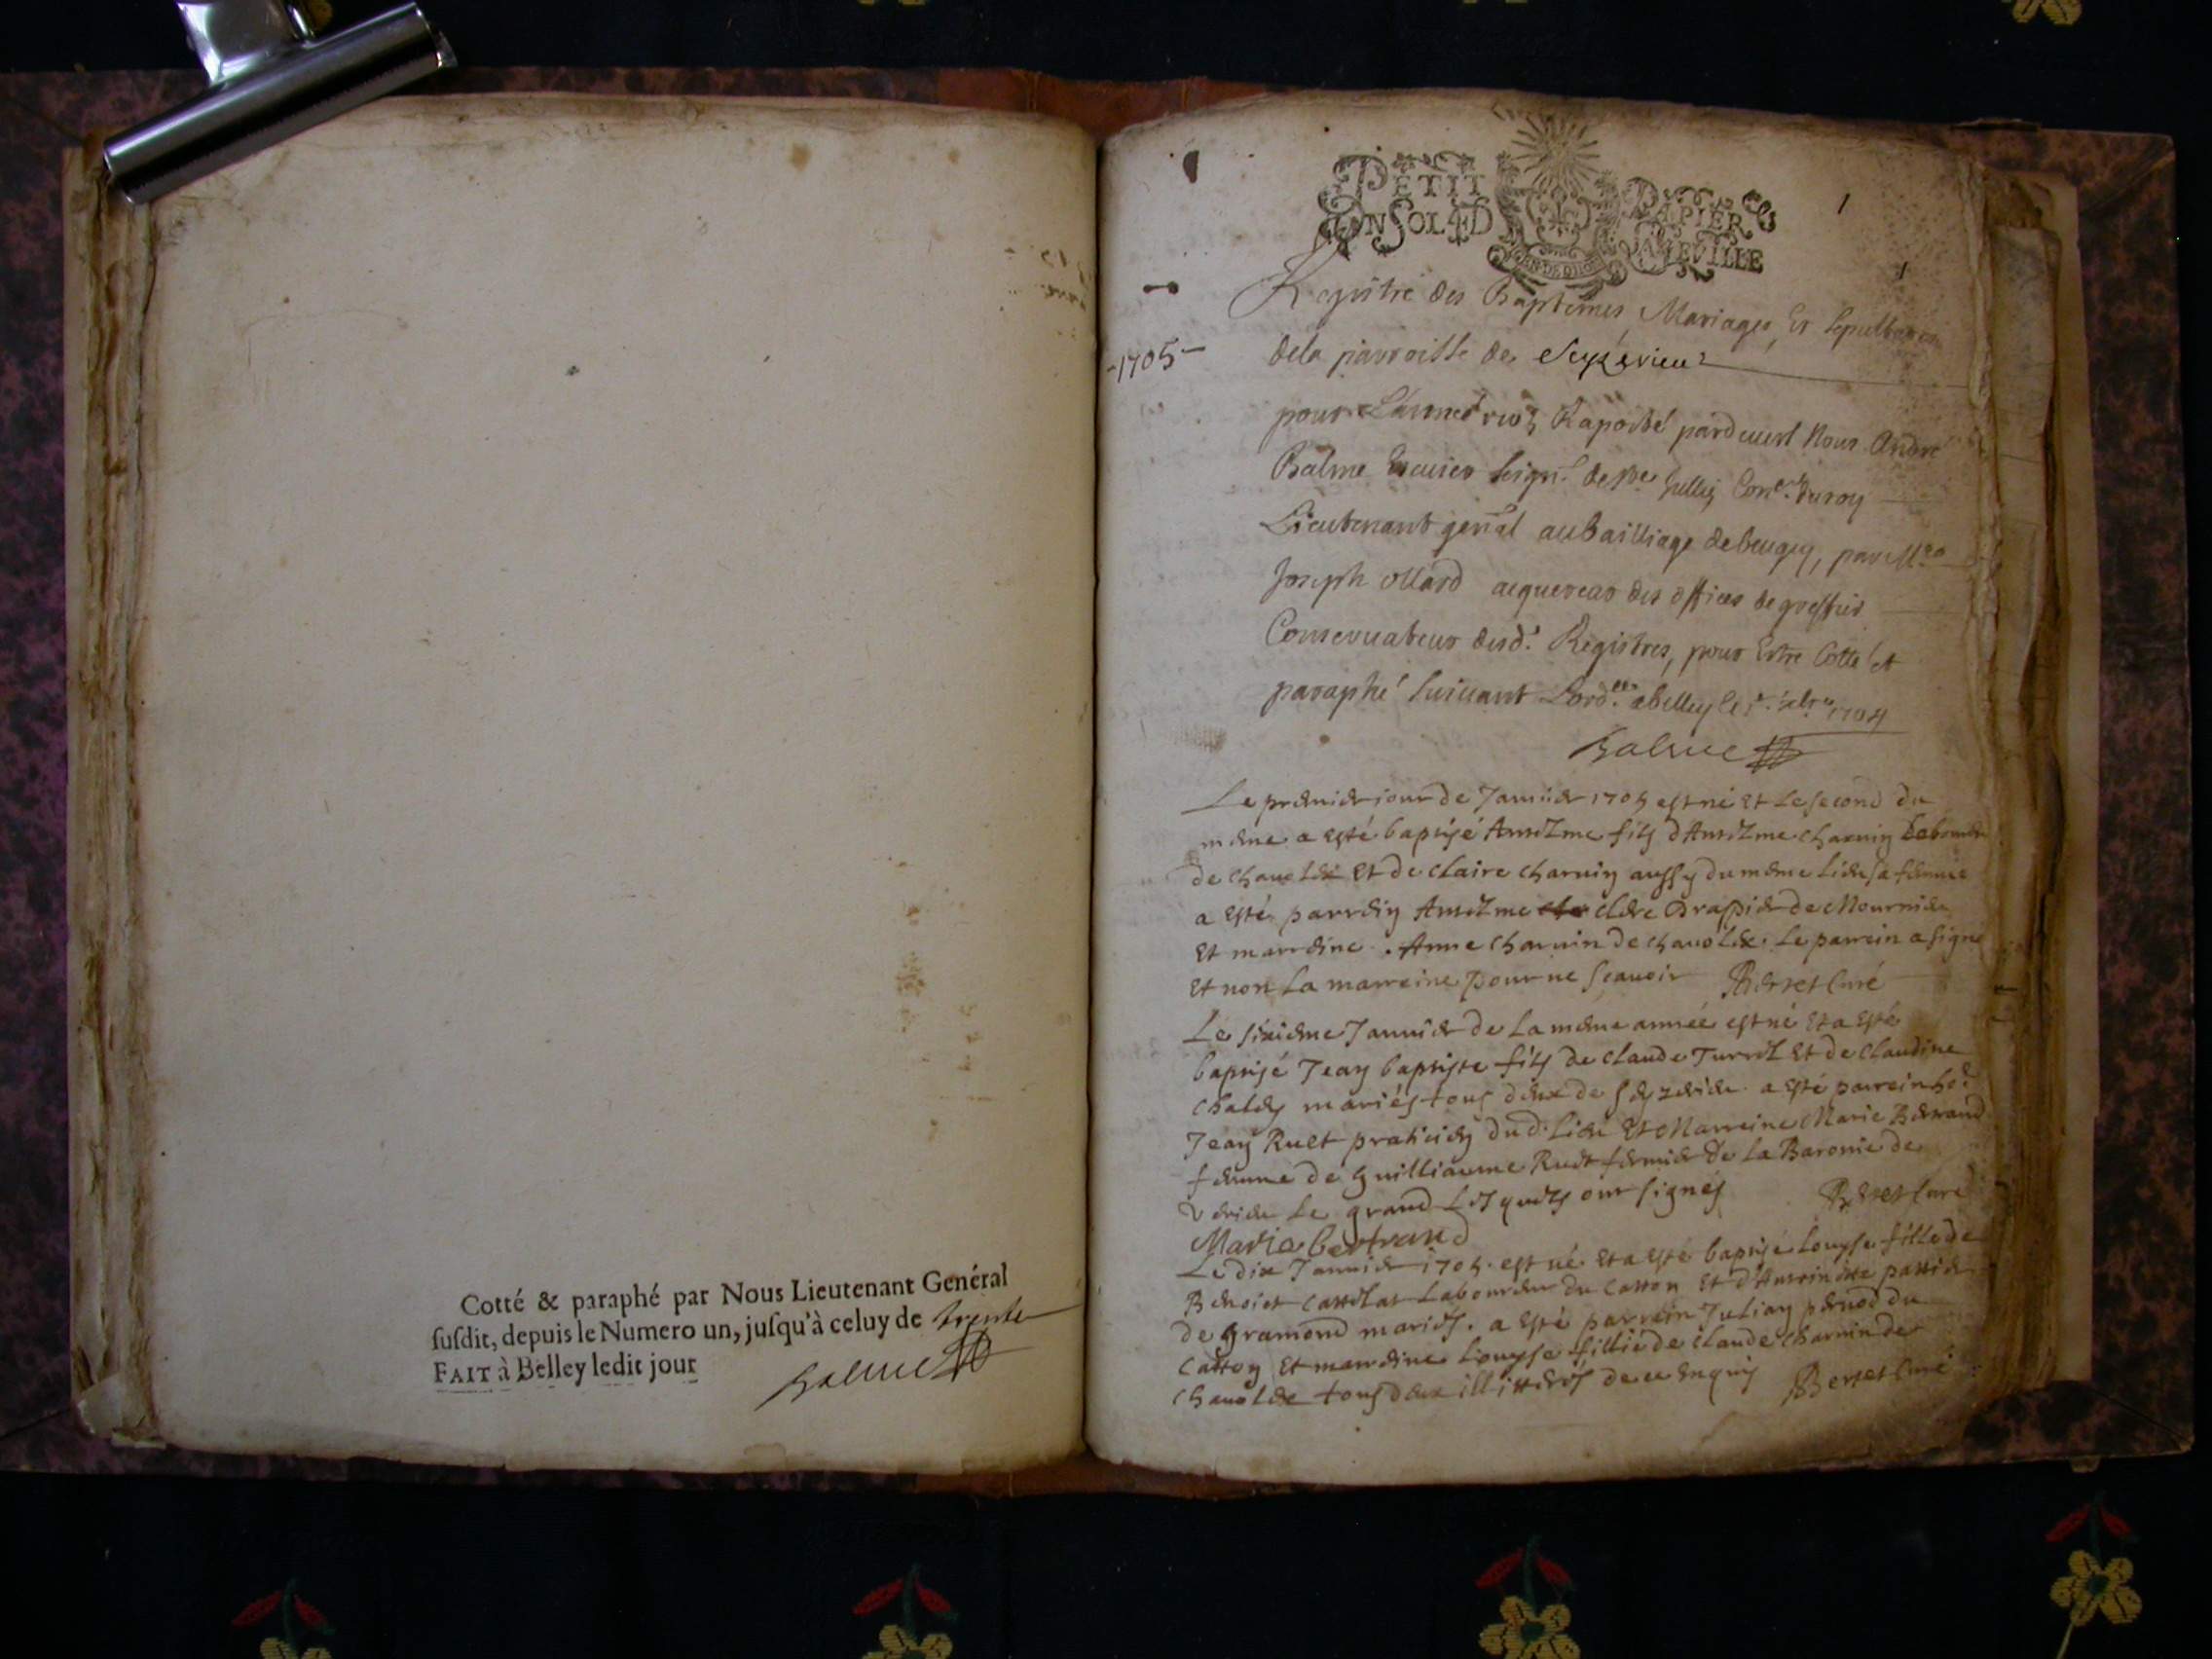 Cotté & paraphé par Nous Lieutenant General
ſuſdit, depuis le Numero un, juſqu'à celuy de trente
FAIT à Belley ledit jour
Balme
PETIT PAPIER
UN SOL 4D LA FEVILLE
1
1
-1705-
Registre des Baptemes, Mariages, Et Sepultures
dela parroisse de Seyzerieu
pour Rapporté pardevant Nous André
Balme Escuier Seignr. de Coner. du roy
Lieutenant genal au Bailliage de beugey, par Mre
Joseph ollard acquereur des offices de greffier
Conservateur desd. Registres, pour Estre Cotté et
paraphé suivant Lordce abelley le 1704
Balme
Le premier jour de Janvier 1705 est né Et Le second du
meme a esté baptisé Antelme fils d'Antelme Charvin Laboureur
de Chavolex Et de Claire Charvin aussy du meme Lieu sa femme
a esté parrein Antelme Clerc Drapier de
Et marreine Anne Charvin de Chavolex. Le parrein a signé
Et non La marreine pour ne scavoir Berset Curé
Le sixieme Janvier de La meme année est né Et a Esté
baptisé Jean baptiste fils de Claude Turrel Et de Claudine
Chaley mariés tous deux de Seyzerieu. a esté parrein
Jean Ruet praticien dud. Lieu Et Marreine Marie Bertrand
femme de Guilliaume Ruet fermier de La Baronie de
Le grand Lesquels ont signés Berset Curé
Marie bertrand
Le dix Janvier 1705. est né Et a esté baptisé Louyse fille de
Benoict Laboureur du Catton Et d'Antoinette
de Gramond mariés. a esté parrein Julian pernod du
Catton Et marreine Louyse fillie de Claude Charvin de
Chavolex tous deux illitterés de ce Enquis Berset Curé